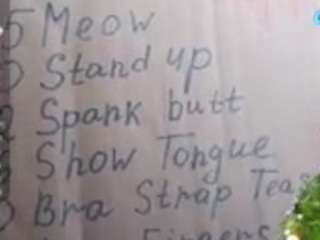 5 Meow
Stand up
Spank butt
Show Tongue
Bra Strap Teas
Fingers